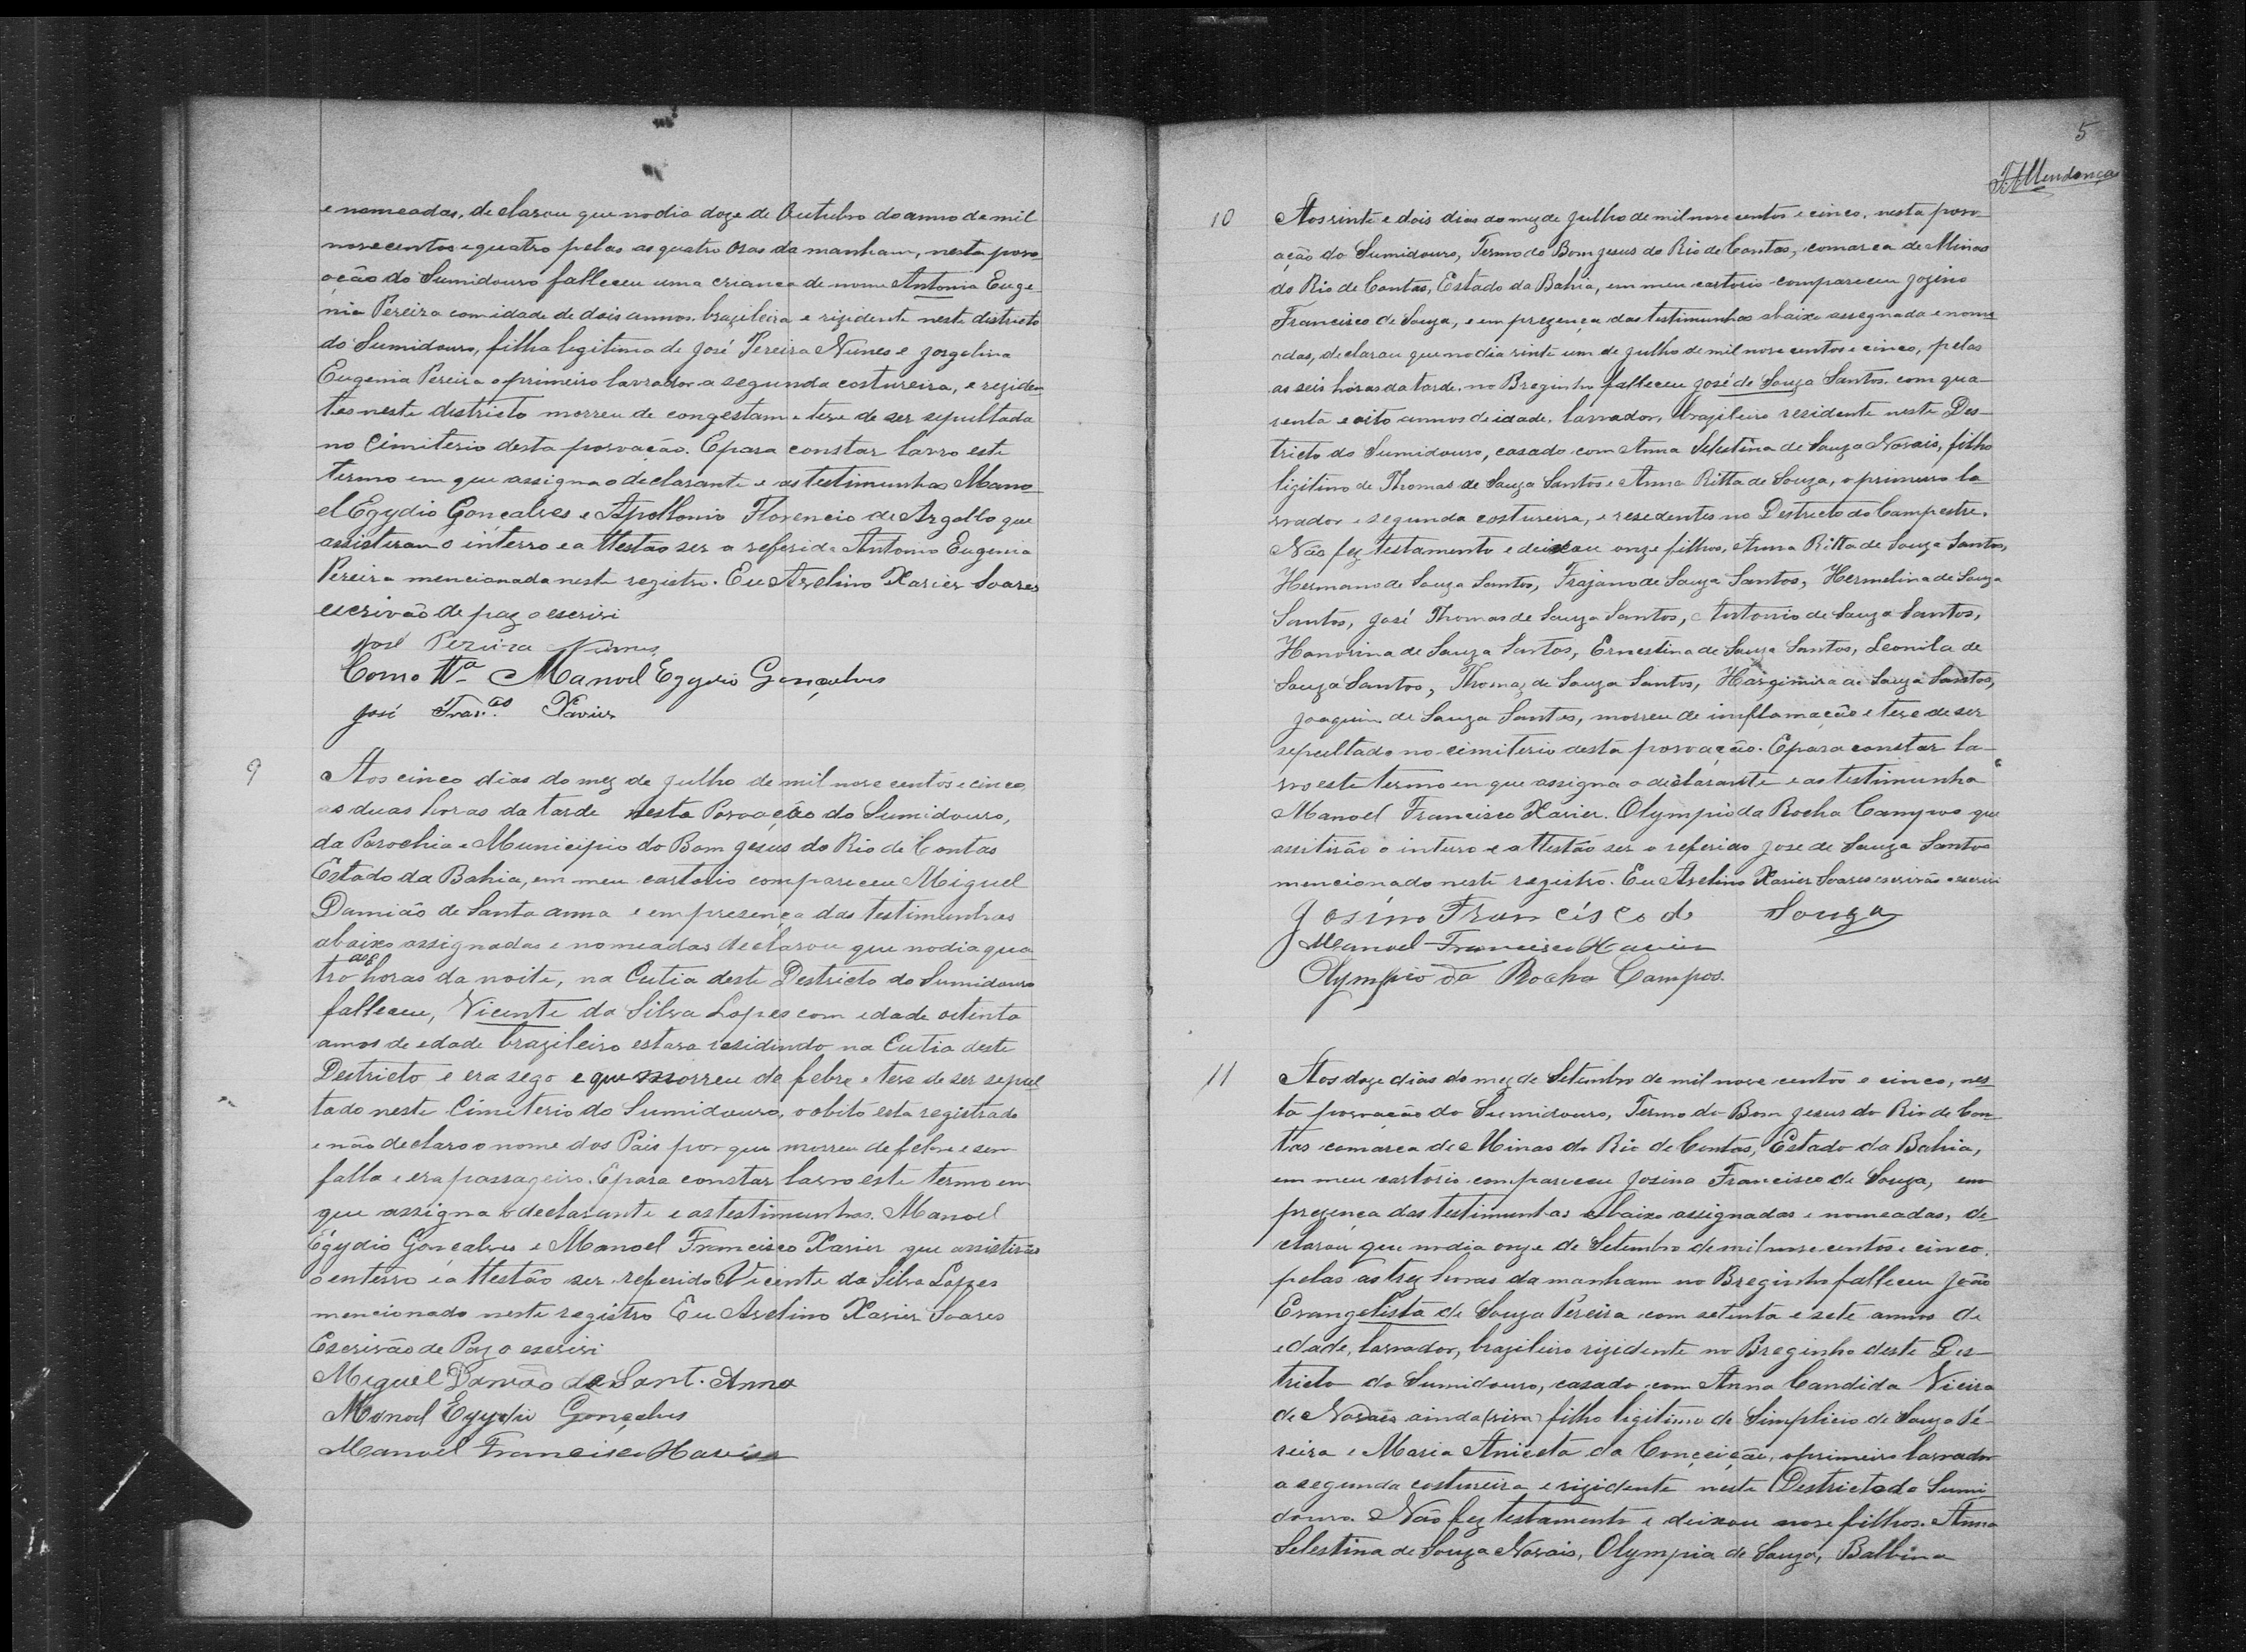 e nomeadas, declarou que no dia doze de Outubro do anno de mil
novecentos e quatro pelas as quatro oras da manham, nesta povo
ação do Sumidouro falleceu uma criança de nome Antonia Euge
nia Pereira com idade de dois annos, brazileira e rizidente neste districto
do Sumidouro, filha legitima de José Pereira Nunes e Jorgelina
Eugenia Pereira o primeiro lavrador a segunda costureira, e reziden
tes neste districto morreu de congestam e teve de ser sepultada
no Cimiterio desta povoação. E para constar lavro este
termo em que assigna o declarante e as testimunhas Mano
el Egydio Gonçalves e Apollonio Florencio de Argollo que
assistiram o interro e attestão ser a referida Antonia Eugenia
Pereira mencionada neste registro. Eu Avelino Xavier Soares
escrivão de paz o escrivi
José Pereira Nunes
Como tta Manoel Egydio Gonçalves
José Fran.co Xavier
9
Aos cinco dias do mez de Julho de mil nove centos e cinco
as duas horas da tarde nesta Povoação do Sumidouro,
da Parochia e Municipio do Bom Jesus do Rio de Contas
Estado da Bahia, em meu cartorio compareceu Miguel
Damião de Santa anna e em presença das testimunhas
abaixo assignadas e nomeadas declarou que no dia qua
tro as 8 horas da noite, na Cutia deste Destricto do Sumidouro
falleceu, Vicente da Silva Lopes com edade oitenta
annos de edade brazileiro estava residindo na Cutia deste
Destricto e era sego e que morreu de febre e teve de ser sepul
tado neste Cimiterio do Sumidouro, o obito está registrado
e não declaro o nome dos Pais por que morreu de febre e sem
falla e era passageiro. E para constar lavro este termo em
que assigna o declarante e as testimunhas. Manoel
Egydio Gonçalves e Manoel Francisco Xavier que assistirão
o enterro e attestão ser referido Vicente da Silva Lopes
mencionado neste registro Eu Avelino Xavier Soares
Escrivão de Paz o escrivi
Miguel Damião de Sant. Anna
Manoel Egydio Gonçalves
Manoel Francisco Xavier
5
10
Aos vinte e dois dias do mez de Julho de mil nove centos e cinco, nesta povo-
ação do Sumidouro, Termo do Bom Jesus do Rio de Contas, comarca de Minas
do Rio de Contas, Estado da Bahia, em meu cartorio compareceu Jozino
Francisco de Souza, e em prezença das testimunhas abaixo assegnada e nome
adas, declarou que no dia vinte um de Julho de mil nove centos e cinco, pelas
as seis horas da tarde, no Breginho falleceu José de Souza Santos, com qua-
renta e oito annos de idade, lavrador, brazileiro residente neste Des-
tricto do Sumidouro, casado com Anna Selestina de Souza Novais, filho
ligitimo de Thomas de Souza Santos e Anna Ritta de Souza, o primeiro la
vrador e segunda costureira, e resedentes no Destricto do Campestre.
Não fez testamento e deixou onze filhos, Anna Ritta de Souza Santos,
Hermano de Souza Santos, Trajano de Souza Santos, Hermelina de Souza
Santos, José Thomas de Souza Santos, Antonio de Souza Santos,
Honorina de Souza Santos, Ernestina de Souza Santos, Leonila de
Souza Santos, Thomaz de Souza Santos, Hargimira de Souza Santos,
Joaquim de Souza Santos, morreu de inflamação e teve de ser
sepultado no cimiterio desta povoação. E para constar la-
vro este termo em que assigna o declarante e as testimunhas
Manoel Francisco Xavier. Olympio da Rocha Campos que
assitirão o interro e attestão ser o referido José de Souza Santos
mencionado neste registro. Eu Avelino Xavier Soares escrivão o escrivi
Josino Francisco de Souza
Manoel Francisco Xavier
Olympio da Rocha Campos.
11
Aos doze dias do mez de Setembro de mil nove centos e cinco, nes
ta povoação do Sumidouro, Termo do Bom Jesus do Rio de Con-
tas comarca de Minas do Rio de Contas, Estado da Bahia,
em meu cartorio compareceu Josino Francisco de Souza, em
prezença das testimunhas abaixo assignadas e nomeadas, de
clarou que no dia onze de Setembro de mil nove centos e cinco,
pelas as trez horas da manham no Breginho falleceu João
Evangelista de Souza Pereira com setenta e sete annos de
edade, lavrador, brazileiro rizidente no Breginho deste Des-
tricto do Sumidouro, casado com Anna Candida Vieira
de Novaes ainda (viva) filho ligitimo de Simplicio de Souza Pe-
reira e Maria Aniceta da Conçeição, o primeiro lavrador
a segunda costureira e rizidente neste Destricto do Sumi
douro. Não fez testamento e deixou nove filhos. Anna
Selestina de Souza Novais, Olympia de Souza, Balbina